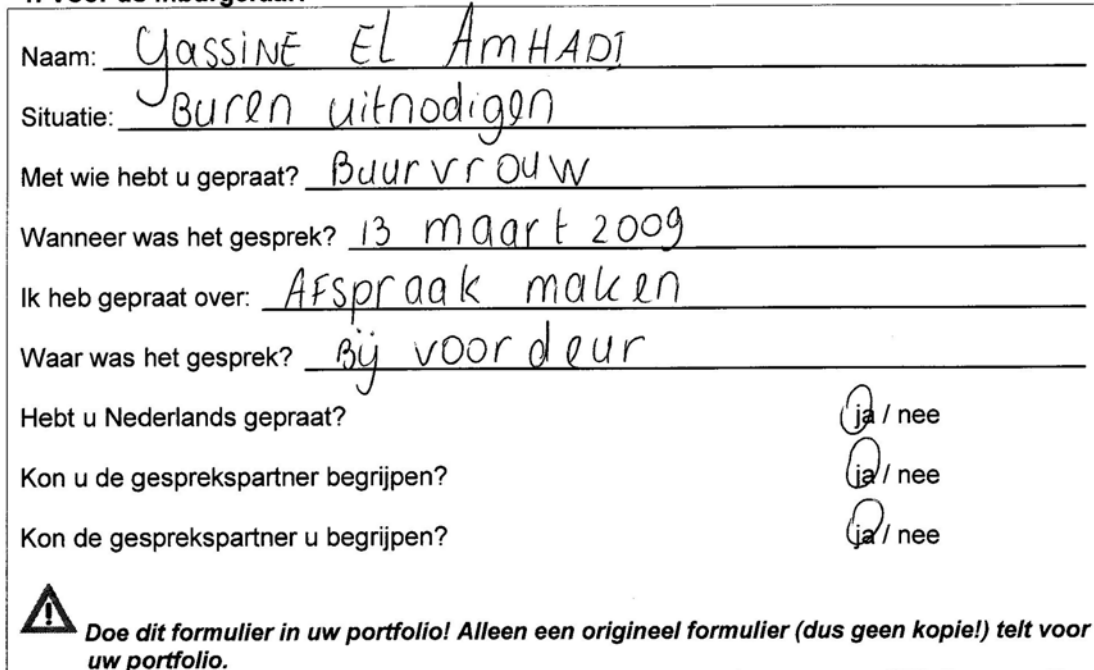 Naam: Yassine El AmHADI
Situatie: Buren uitnodigen
Met wie hebt u gepraat? Buurvrouw
Wanneer was het gesprek? 13 maart 2009
Ik heb gepraat over: AFspraak maken
Waar was het gesprek? Bij voordeur
Hebt u Nederlands gepraat? ja / nee
Kon u de gesprekspartner begrijpen? ja / nee
Kon de gesprekspartner u begrijpen? ja / nee
Doe dit formulier in uw portfolio! Alleen een origineel formulier (dus geen kopie!) telt voor
uw portfolio.